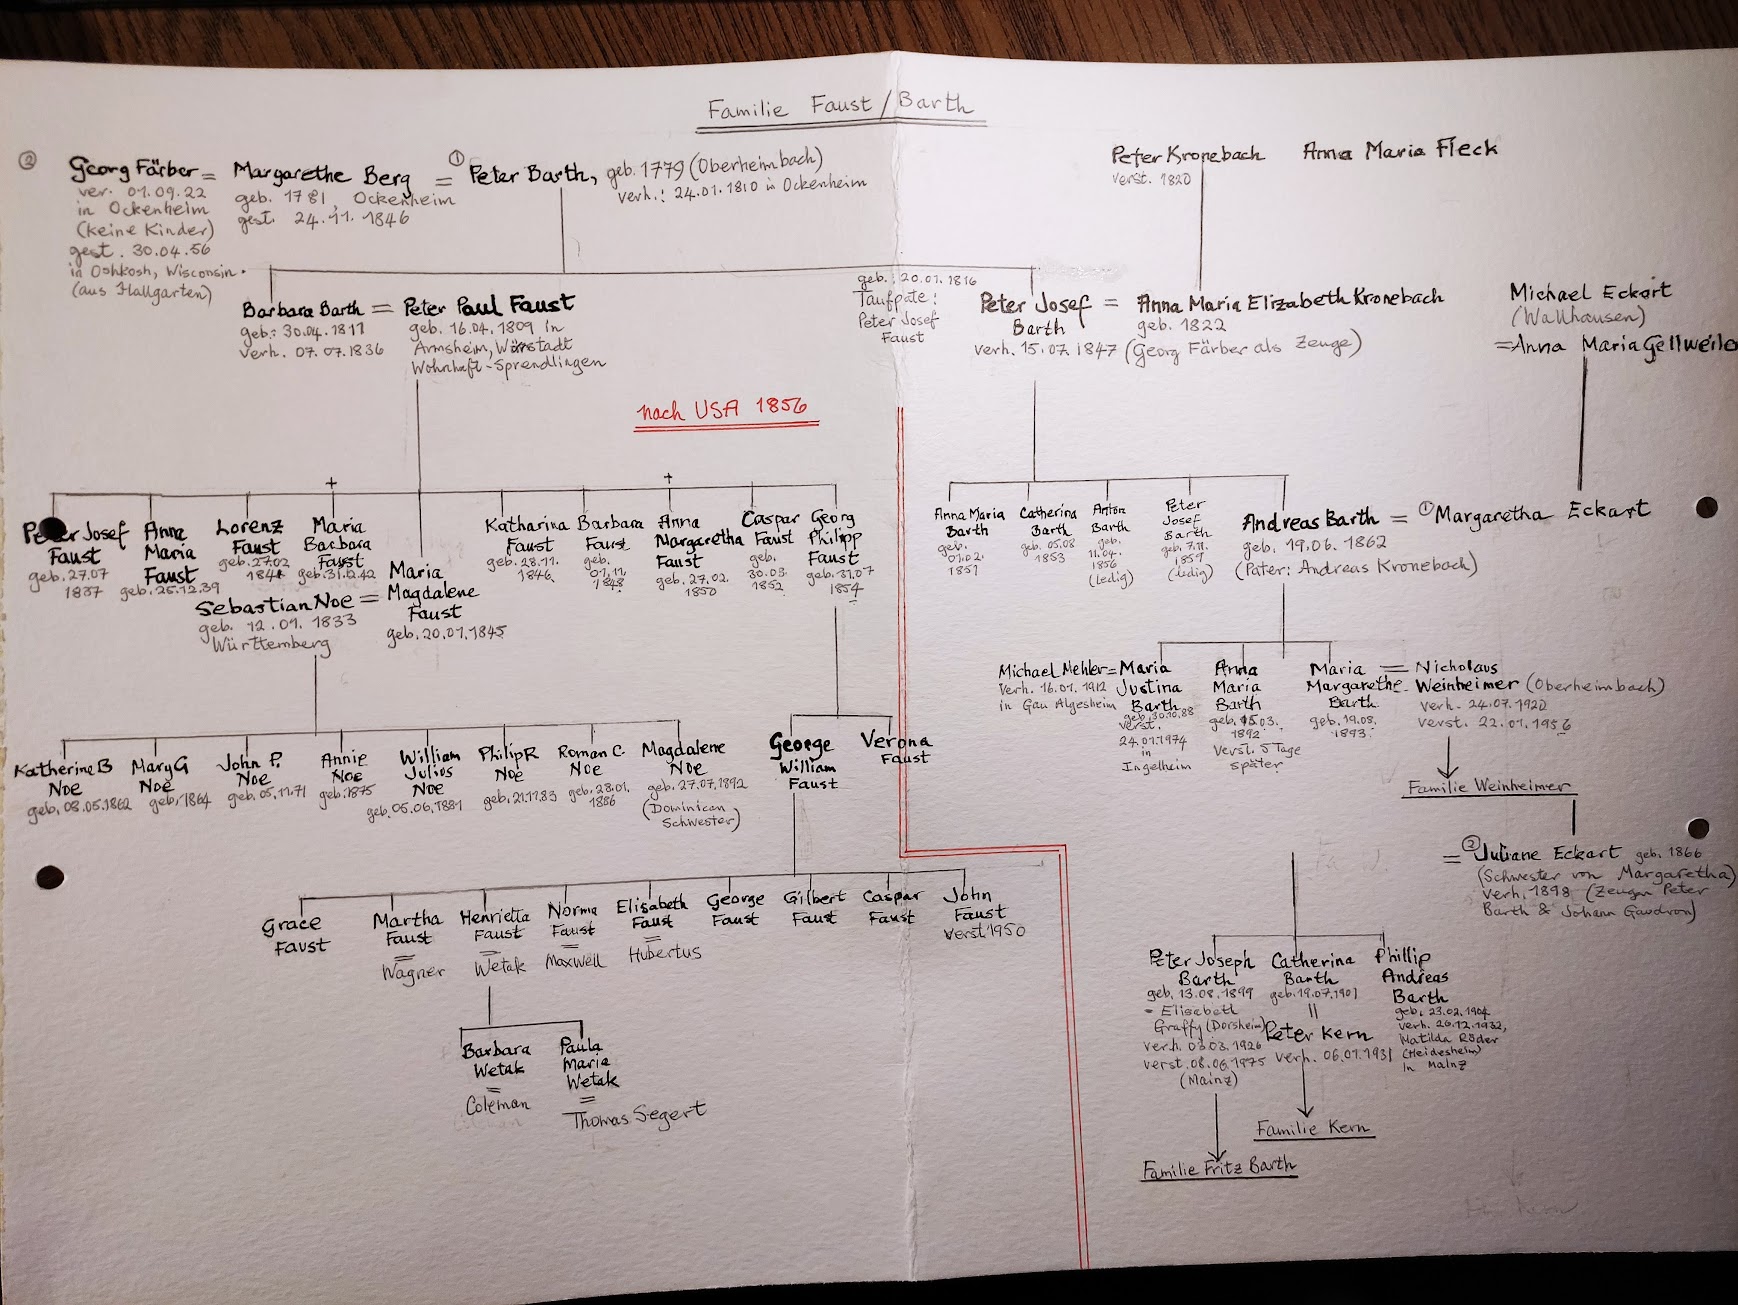 Familie Faust / Barth
② Georg Färber = Margarethe Berg = ① Peter Barth, geb. 1779 (Oberheimbach)
verh.: 24.01.1810 in Ockenheim
ver. 01.09.22
in Ockenheim
(keine Kinder)
gest. 30.04.56
in Oshkosh, Wisconsin.
(aus Hallgarten)
geb. 1781, Ockenheim
gest. 24.11.1846
Peter Kronebach Anna Maria Fleck
verst. 1820
Barbara Barth = Peter Paul Faust
geb.: 30.04.1811
verh. 07.07.1836
geb. 16.04.1809 in
Armsheim, Wörrstadt
Wohnhaft-Sprendlingen
geb.: 20.01.1816
Taufpate:
Peter Josef
Faust
Peter Josef = Anna Maria Elizabeth Kronebach
Barth geb. 1822
verh. 15.07.1847 (Georg Färber als Zeuge)
Michael Eckart
(Wallhausen)
= Anna Maria Gellweile
nach USA 1856
Peter Josef
Faust
geb. 27.07
1837
Anna
Maria
Faust
geb. 25.12.39
Lorenz
Faust
geb. 27.02
+
Maria
Barbara
Faust
Sebastian Noe = Maria
Magdalene
Faust
geb. 20.01.1845
geb. 12.01.1833
Württemberg
Katharina
Faust
geb. 28.11.
1846
Barbara
Faust
geb.
01.11.
1848
+
Anna
Margaretha
Faust
geb. 27.02.
1850
Caspar
Faust
geb.
30.03.
1852
Georg
Philipp
Faust
geb. 31.07
1854
Anna Maria
Barth
geb.
01.02.
1851
Catherina
Barth
geb. 05.08
1853
Anton
Barth
geb.
11.04.
1856
(ledig)
Peter
Josef
Barth
geb. 7.11.
1859
(ledig)
Andreas Barth = ① Margaretha Eckart
geb. 19.06.1862
(Pater: Andreas Kronebach)
Michael Mehler = Maria
Justina
Barth
geb. 30.10.88
verst.
24.01.1974
in
Ingelheim
verh. 16.01.1912
in Gau Algesheim
Anna
Maria
Barth
geb. 15.03.
1892
verst. 5 Tage
später
Maria = Nicholaus
Margarethe Weinheimer (Oberheimbach)
Barth
geb. 19.08.
1893
verh. 24.07.1920
verst. 22.01.1956
Familie Weinheimer
Katherine B
Noe
geb. 08.05.1862
Mary G
Noe
geb. 1864
John P.
Noe
geb. 05.11.71
Annie
Noe
geb. 1875
William
Julios
Noe
geb. 05.06.1881
Philip R
Noe
geb. 21.11.83
Roman C.
Noe
geb. 28.01.
1886
Magdalene
Noe
geb. 27.07.1892
(Dominican
Schwester)
George
William
Faust
Verona
Faust
= ② Juliane Eckart geb. 1866
(Schwester von Margaretha)
verh. 1898 (Zeugen Peter
Barth & Johann Gaudron)
Grace
Faust
Martha
Faust
=
Wagner
Henrietta
Faust
=
Wetak
Norma
Faust
=
Maxwell
Elisabeth
Faust
=
Hubertus
George
Faust
Gilbert
Faust
Caspar
Faust
John
Faust
verst 1950
Barbara
Wetak
=
Coleman
Paula
Maria
Wetak
=
Thomas Segert
Peter Joseph
Barth
geb. 13.08.1899
= Elisabeth
Graffy (Dorsheim)
verh. 03.03.1926
verst. 08.06.1975
(Mainz)
Catherina
Barth
geb. 19.07.1901
=
Peter Kern
verh. 06.01.1931
Phillip
Andreas
Barth
geb. 23.02.1904
verh. 26.12.1932,
Matilda Röder
(Heidesheim)
in Mainz
Familie Kern
Familie Fritz Barth